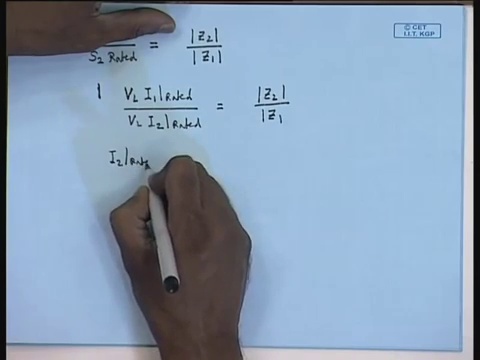 © CET
I.I.T. KGP
S₂ Rated = |Z₂| / |Z₁|
V_L I₁|Rated / V_L I₂|Rated = |Z₂| / |Z₁
I₂|Rate